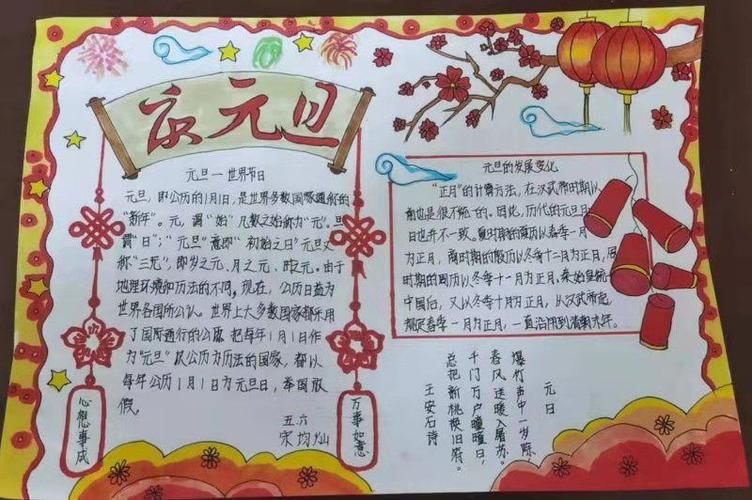 庆元旦
元旦一世界节日
元旦,即公历的1月1日,是世界多数国家通称的
"新年"。元,谓"始"凡数之始称为"元"。旦
谓"日";"元旦"意即"初始之日"元旦又
称"三元",即岁之元、月之元、时之元。由于
地理环境和历法的不同,现在,公历日益为
世界各国所公认。世界上大多数国家都采用
了国际通行的公历 把每年1月1日作
为"元旦"以公历为历法的国家,都以
每年公历1月1日为元旦日,举国放
假。
五.六
宋均灿
心想事成
万事如意
元旦的发展变化
"正月"的计算方法,在汉武帝时期以
前也是很不统一的。因此,历代的元旦月
日也并不一致。夏时期的夏历以春季一月
为正月,商时期的殷历以冬季十二月为正月,周
时期的周历以冬季十一月为正月。秦始皇统一
中国后,又以冬季十月为正月,从汉武帝起,
规定春季一月为正月,一直沿用到清朝末年。
元日
爆竹声中一岁除,
春风送暖入屠苏。
千门万户曈曈日,
总把新桃换旧符。
王安石诗